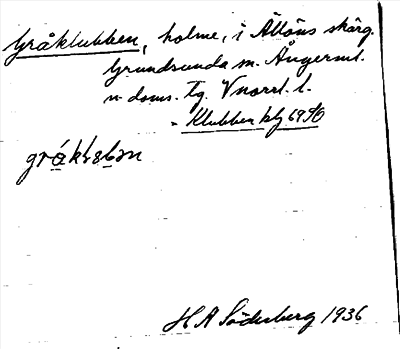 Gråklubben, holme, i Ällöns skärg.
Grundsunda sn. Ångerml.
n. doms. Tg. Vnorrl. l.
- Klubben kbl 69 SO
gråkləbən
H A Söderberg 1936